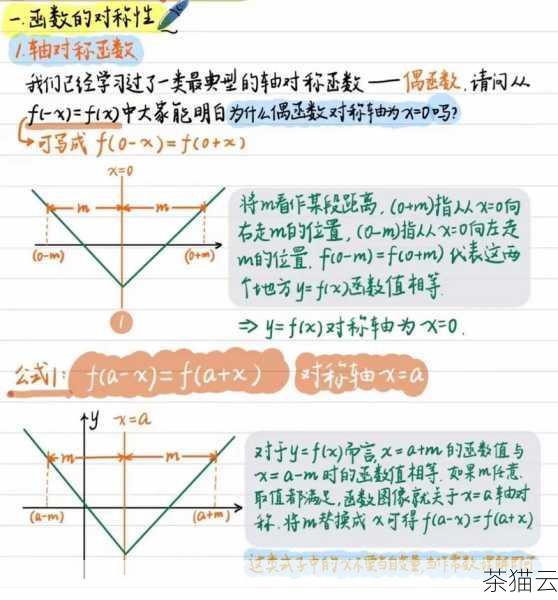 一.函数的对称性
1.轴对称函数
我们已经学习过了一类最典型的轴对称函数——偶函数.请问从
f(-x)=f(x)中大家能明白为什么偶函数对称轴为x=0吗?
可写成 f(0-x)=f(0+x)
x=0
m m
(0-m) (0+m)
1
将m看作某段距离,(0+m)指从x=0向
右走m的位置,(0-m)指从x=0向左走
m的位置.f(0-m)=f(0+m)代表这两
个地方y=f(x)函数值相等.
⇒ y=f(x)对称轴为x=0.
公式1: f(a-x)=f(a+x) 对称轴x=a
y x=a
m m
(a-m) (a+m)
对于y=f(x)而言,x=a+m的函数值与
x=a-m时的函数值相等.如果m任意
取值都满足,函数图像就关于x=a轴对
称.将m替换成x可得f(a-x)=f(a+x)
这类式子中的x不要当自变量,当作常数
茶猫云